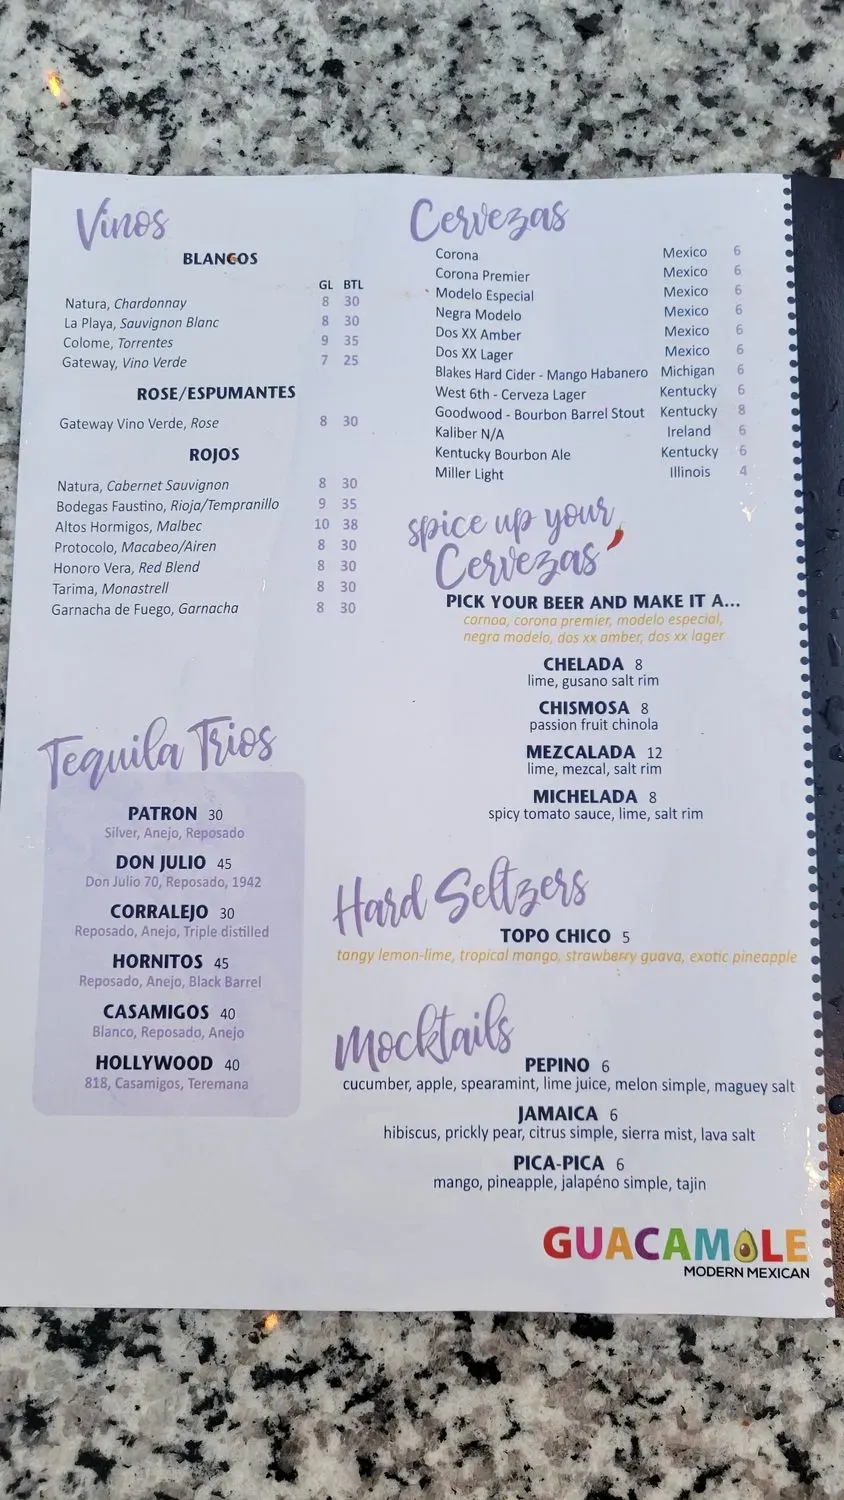 Vinos
BLANCOS
GL BTL
Natura, Chardonnay 8 30
La Playa, Sauvignon Blanc 8 30
Colome, Torrentes 9 35
Gateway, Vino Verde 7 25
ROSE/ESPUMANTES
Gateway Vino Verde, Rose 8 30
ROJOS
Natura, Cabernet Sauvignon 8 30
Bodegas Faustino, Rioja/Tempranillo 9 35
Altos Hormigos, Malbec 10 38
Protocolo, Macabeo/Airen 8 30
Honoro Vera, Red Blend 8 30
Tarima, Monastrell 8 30
Garnacha de Fuego, Garnacha 8 30
Tequila Trios
PATRON 30
Silver, Anejo, Reposado
DON JULIO 45
Don Julio 70, Reposado, 1942
CORRALEJO 30
Reposado, Anejo, Triple distilled
HORNITOS 45
Reposado, Anejo, Black Barrel
CASAMIGOS 40
Blanco, Reposado, Anejo
HOLLYWOOD 40
818, Casamigos, Teremana
Cervezas
Corona Mexico 6
Corona Premier Mexico 6
Modelo Especial Mexico 6
Negra Modelo Mexico 6
Dos XX Amber Mexico 6
Dos XX Lager Mexico 6
Blakes Hard Cider - Mango Habanero Michigan 6
West 6th - Cerveza Lager Kentucky 6
Goodwood - Bourbon Barrel Stout Kentucky 8
Kaliber N/A Ireland 6
Kentucky Bourbon Ale Kentucky 6
Miller Light Illinois 4
spice up your
Cervezas
PICK YOUR BEER AND MAKE IT A...
cornoa, corona premier, modelo especial,
negra modelo, dos xx amber, dos xx lager
CHELADA 8
lime, gusano salt rim
CHISMOSA 8
passion fruit chinola
MEZCALADA 12
lime, mezcal, salt rim
MICHELADA 8
spicy tomato sauce, lime, salt rim
Hard Seltzers
TOPO CHICO 5
tangy lemon-lime, tropical mango, strawberry guava, exotic pineapple
Mocktails
PEPINO 6
cucumber, apple, spearamint, lime juice, melon simple, maguey salt
JAMAICA 6
hibiscus, prickly pear, citrus simple, sierra mist, lava salt
PICA-PICA 6
mango, pineapple, jalapéno simple, tajin
GUACAMOLE
MODERN MEXICAN